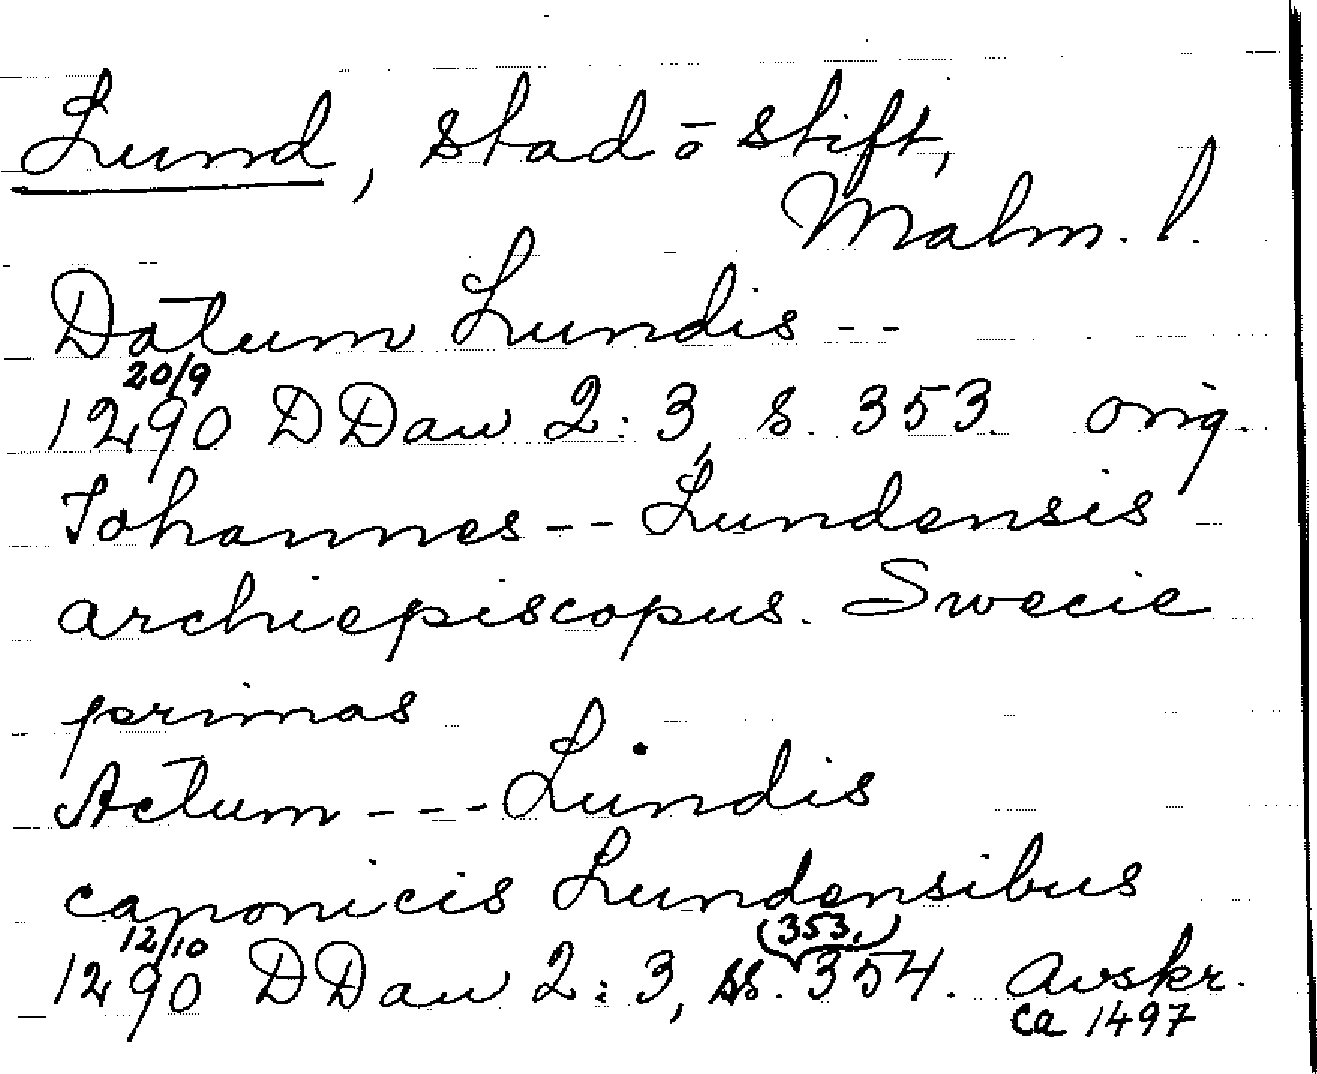 Lund, stad o stift,
Malm. l.
Datum Lundis - -
20/9
1290 DDan 2:3, s. 353. orig.
Iohannes - - Lundensis
archiepiscopus. Swecie
primas
Actum - - - Lundis
canonicis Lundensibus
12/10 (353,)
1290 DDan 2:3, ss. 354. Avskr.
ca 1497